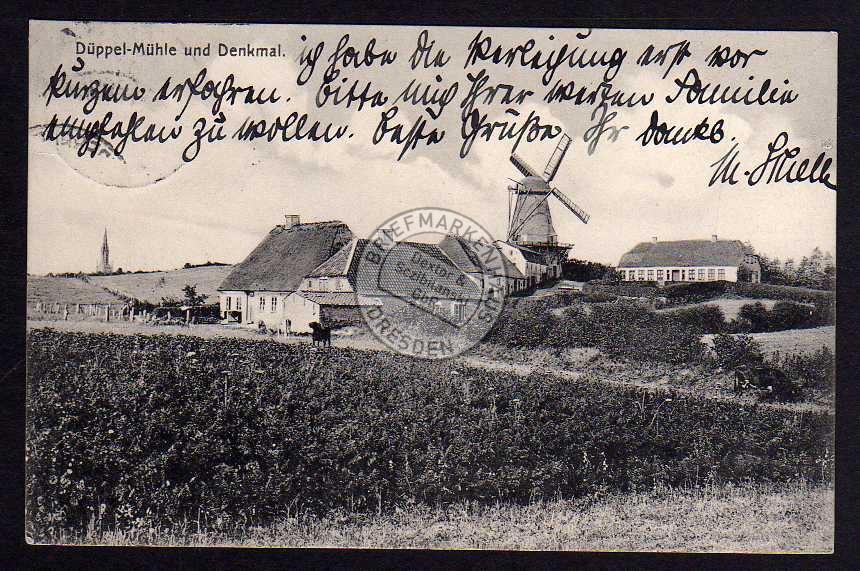 Düppel-Mühle und Denkmal. ich habe die Verleihung erst vor
kurzem erfahren. Bitte mich Ihrer werten Familie
empfehlen zu wollen. Beste Grüße Ihr dankb.
M.
BRIEFMARKENHAUS
DRESDEN